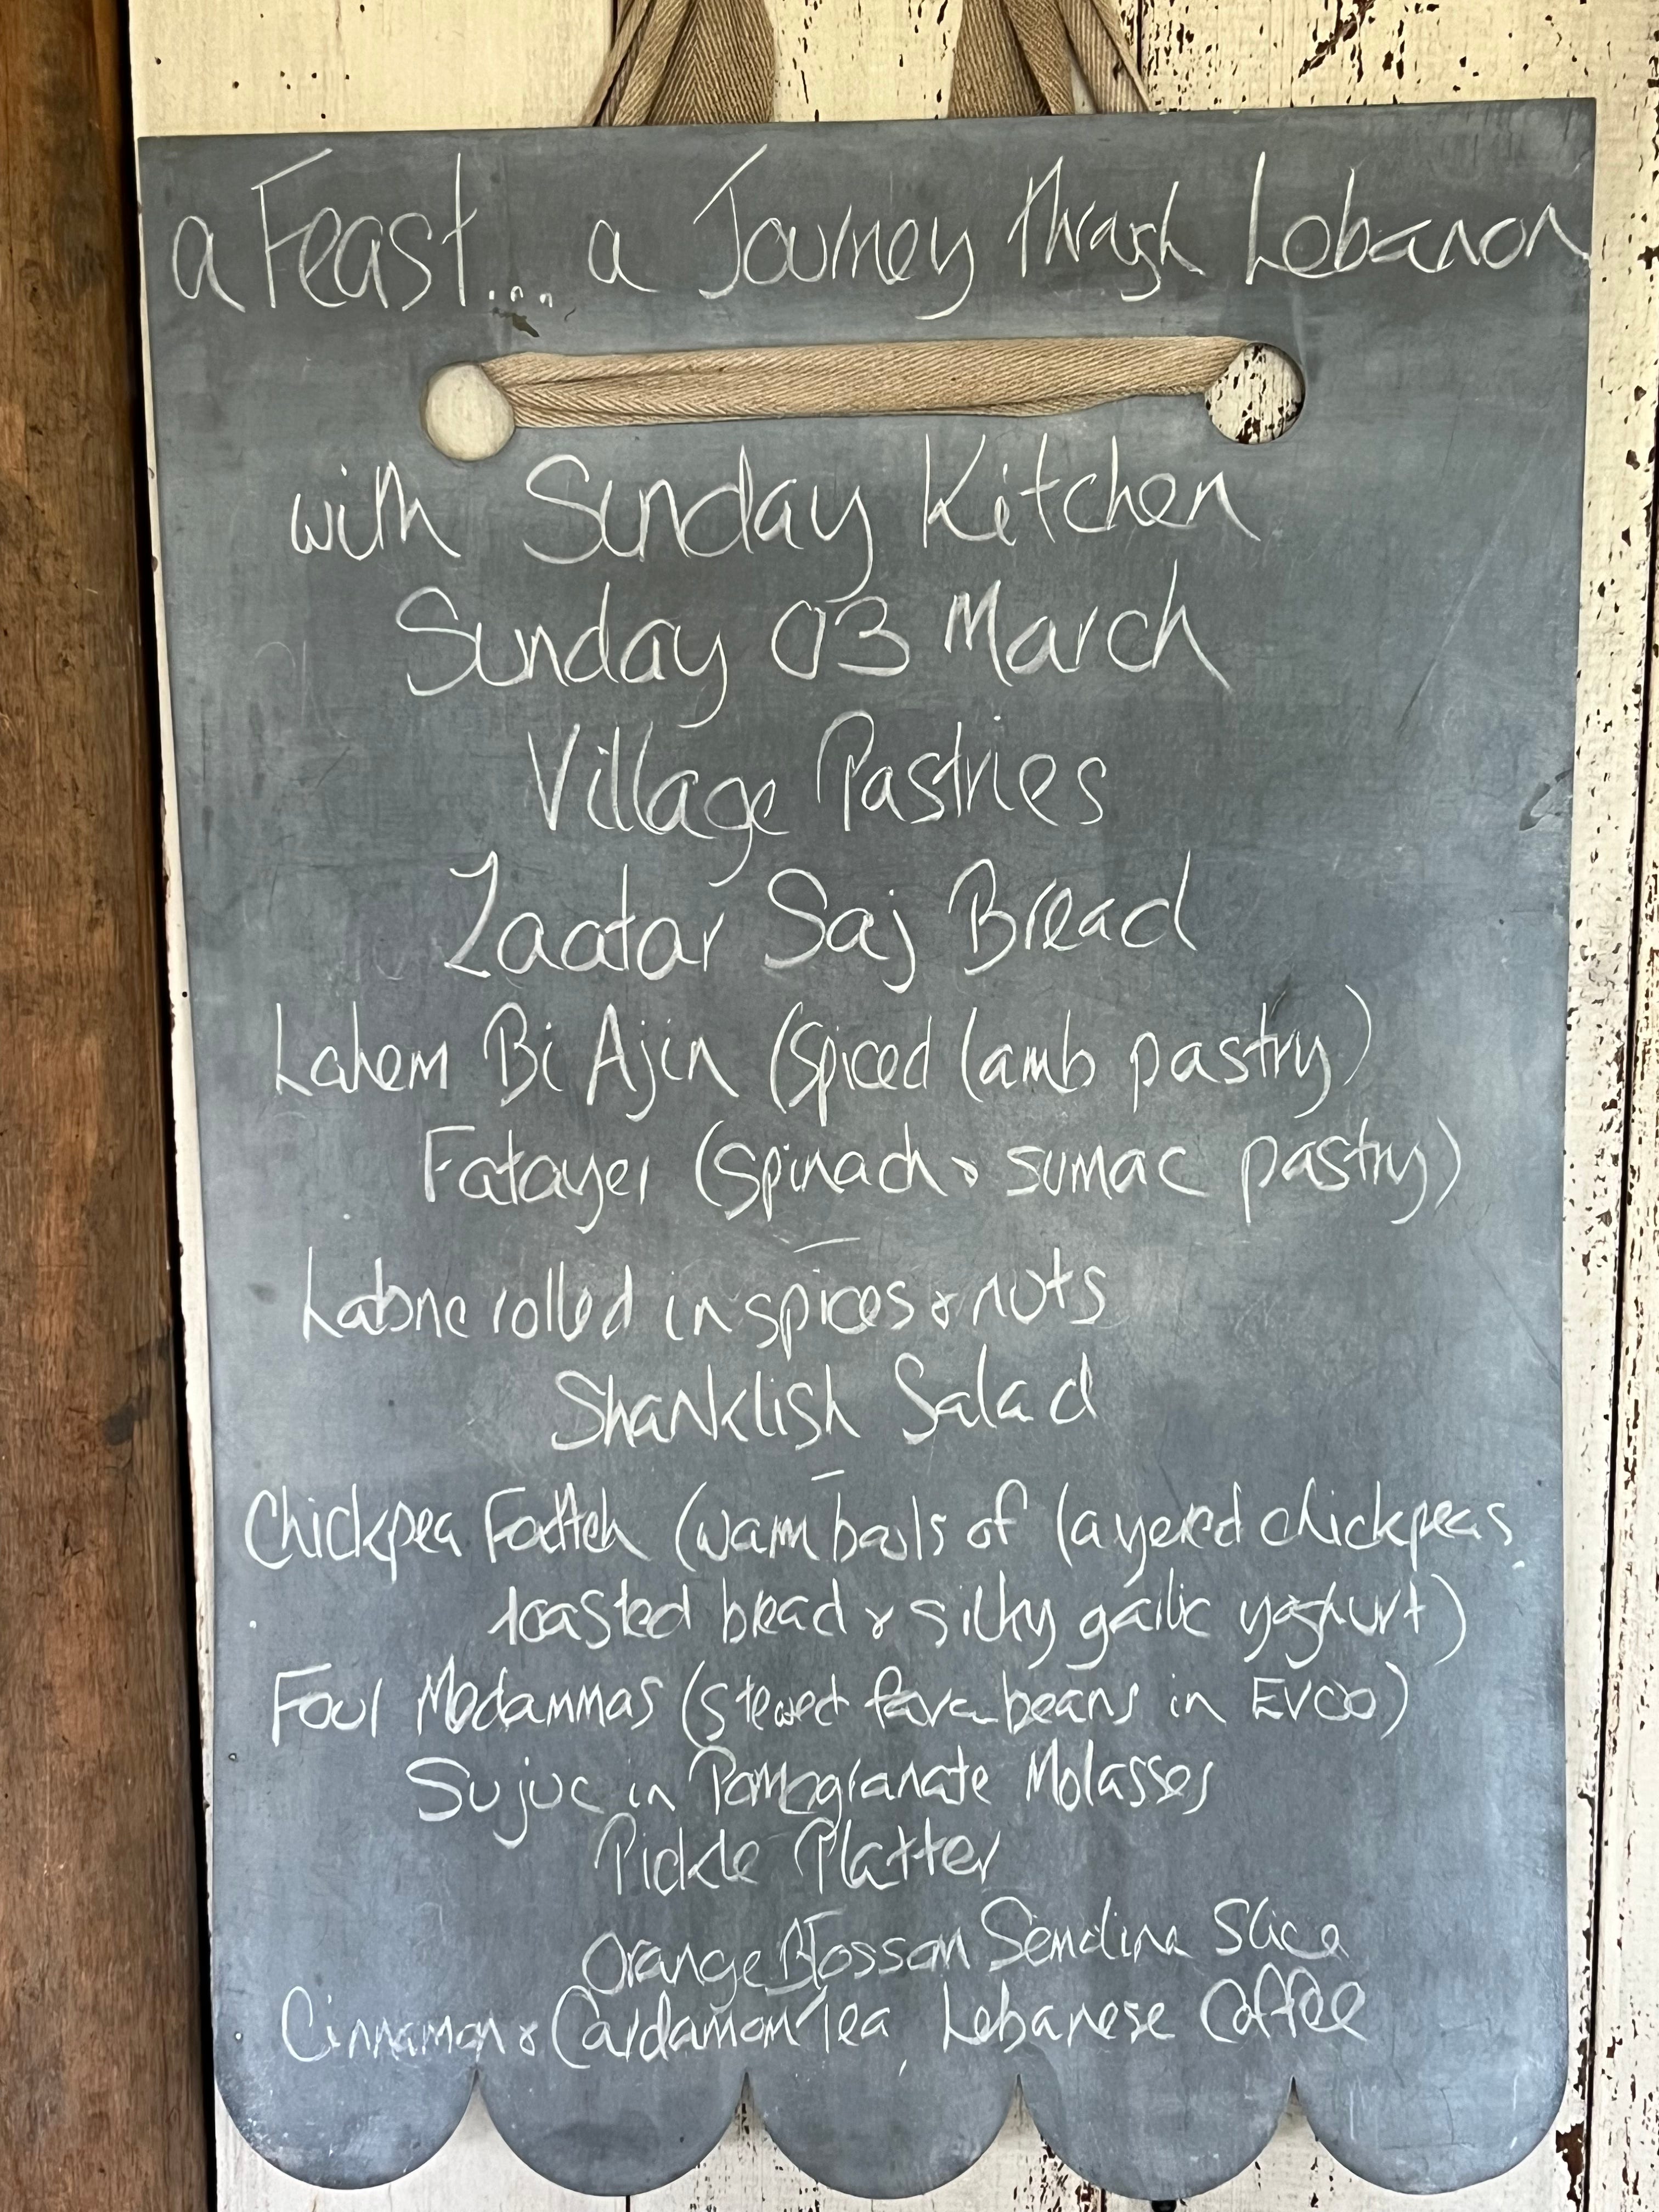 a Feast... a Journey through Lebanon
with Sunday Kitchen
Sunday 03 March
Village Pastries
Zaatar Saj Bread
Lahem Bi Ajin (spiced lamb pastry)
Fatayer (spinach & sumac pastry)
Labne rolled in spices & nuts
Shanklish Salad
Chickpea Fatteh (warm bowls of layered chickpeas,
toasted bread & silky garlic yoghurt)
Foul Modammas (stewed fava beans in EVOO)
Sujuc in Pomegranate Molasses
Pickle Platter
Orange Blossom Semolina Slice
Cinnamon & Cardamom Tea, Lebanese Coffee